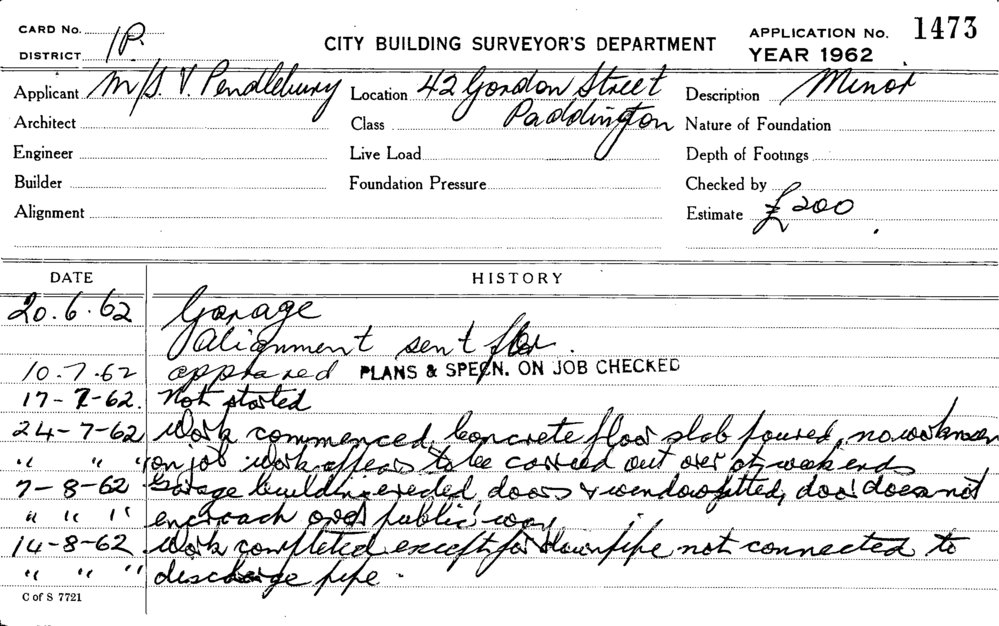 CARD No. 1P.
DISTRICT
CITY BUILDING SURVEYOR'S DEPARTMENT
APPLICATION No. 1473
YEAR 1962
Applicant M/S. V. Pendlebury Location 42 Gordon Street Description Minor
Architect Class Paddington Nature of Foundation
Engineer Live Load Depth of Footings
Builder Foundation Pressure Checked by
Alignment Estimate £200
DATE HISTORY
20.6.62 Garage
Alignment sent for.
10.7.62 approved PLANS & SPECN. ON JOB CHECKED
17-7-62. Not started
24-7-62 Work commenced, Concrete floor slab poured, no workmen
" " " on job work appears to be carried out over at weekends
7-8-62 Garage building erected, doors & windows fitted, door does not
" " " encroach over public way
14-8-62 Work completed except for downpipe not connected to
" " " discharge pipe.
C of S 7721